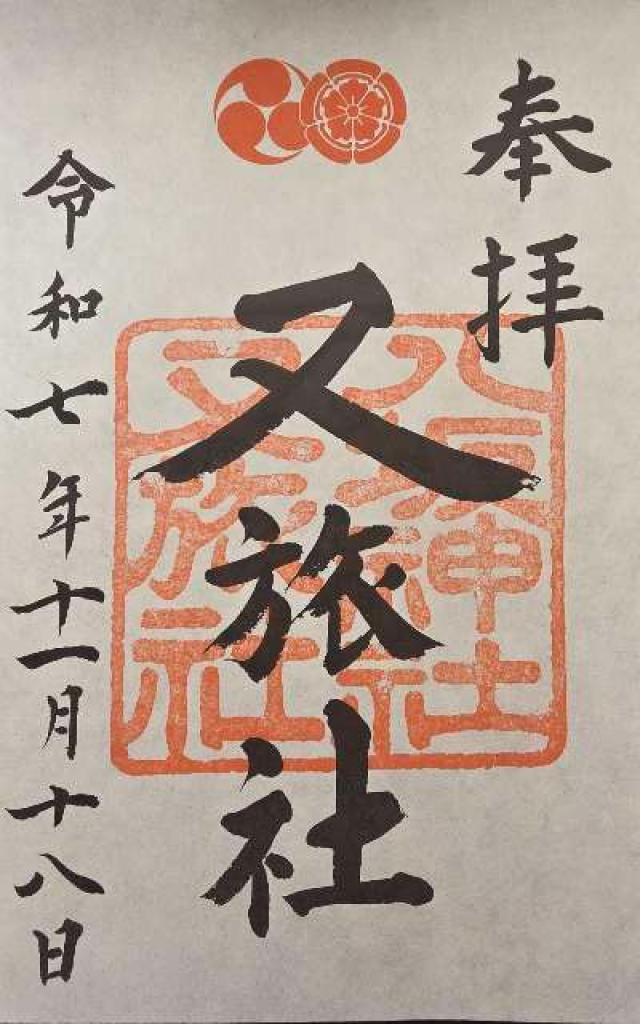 奉拝
又旅社
八坂神社
又旅社
令和七年十一月十八日